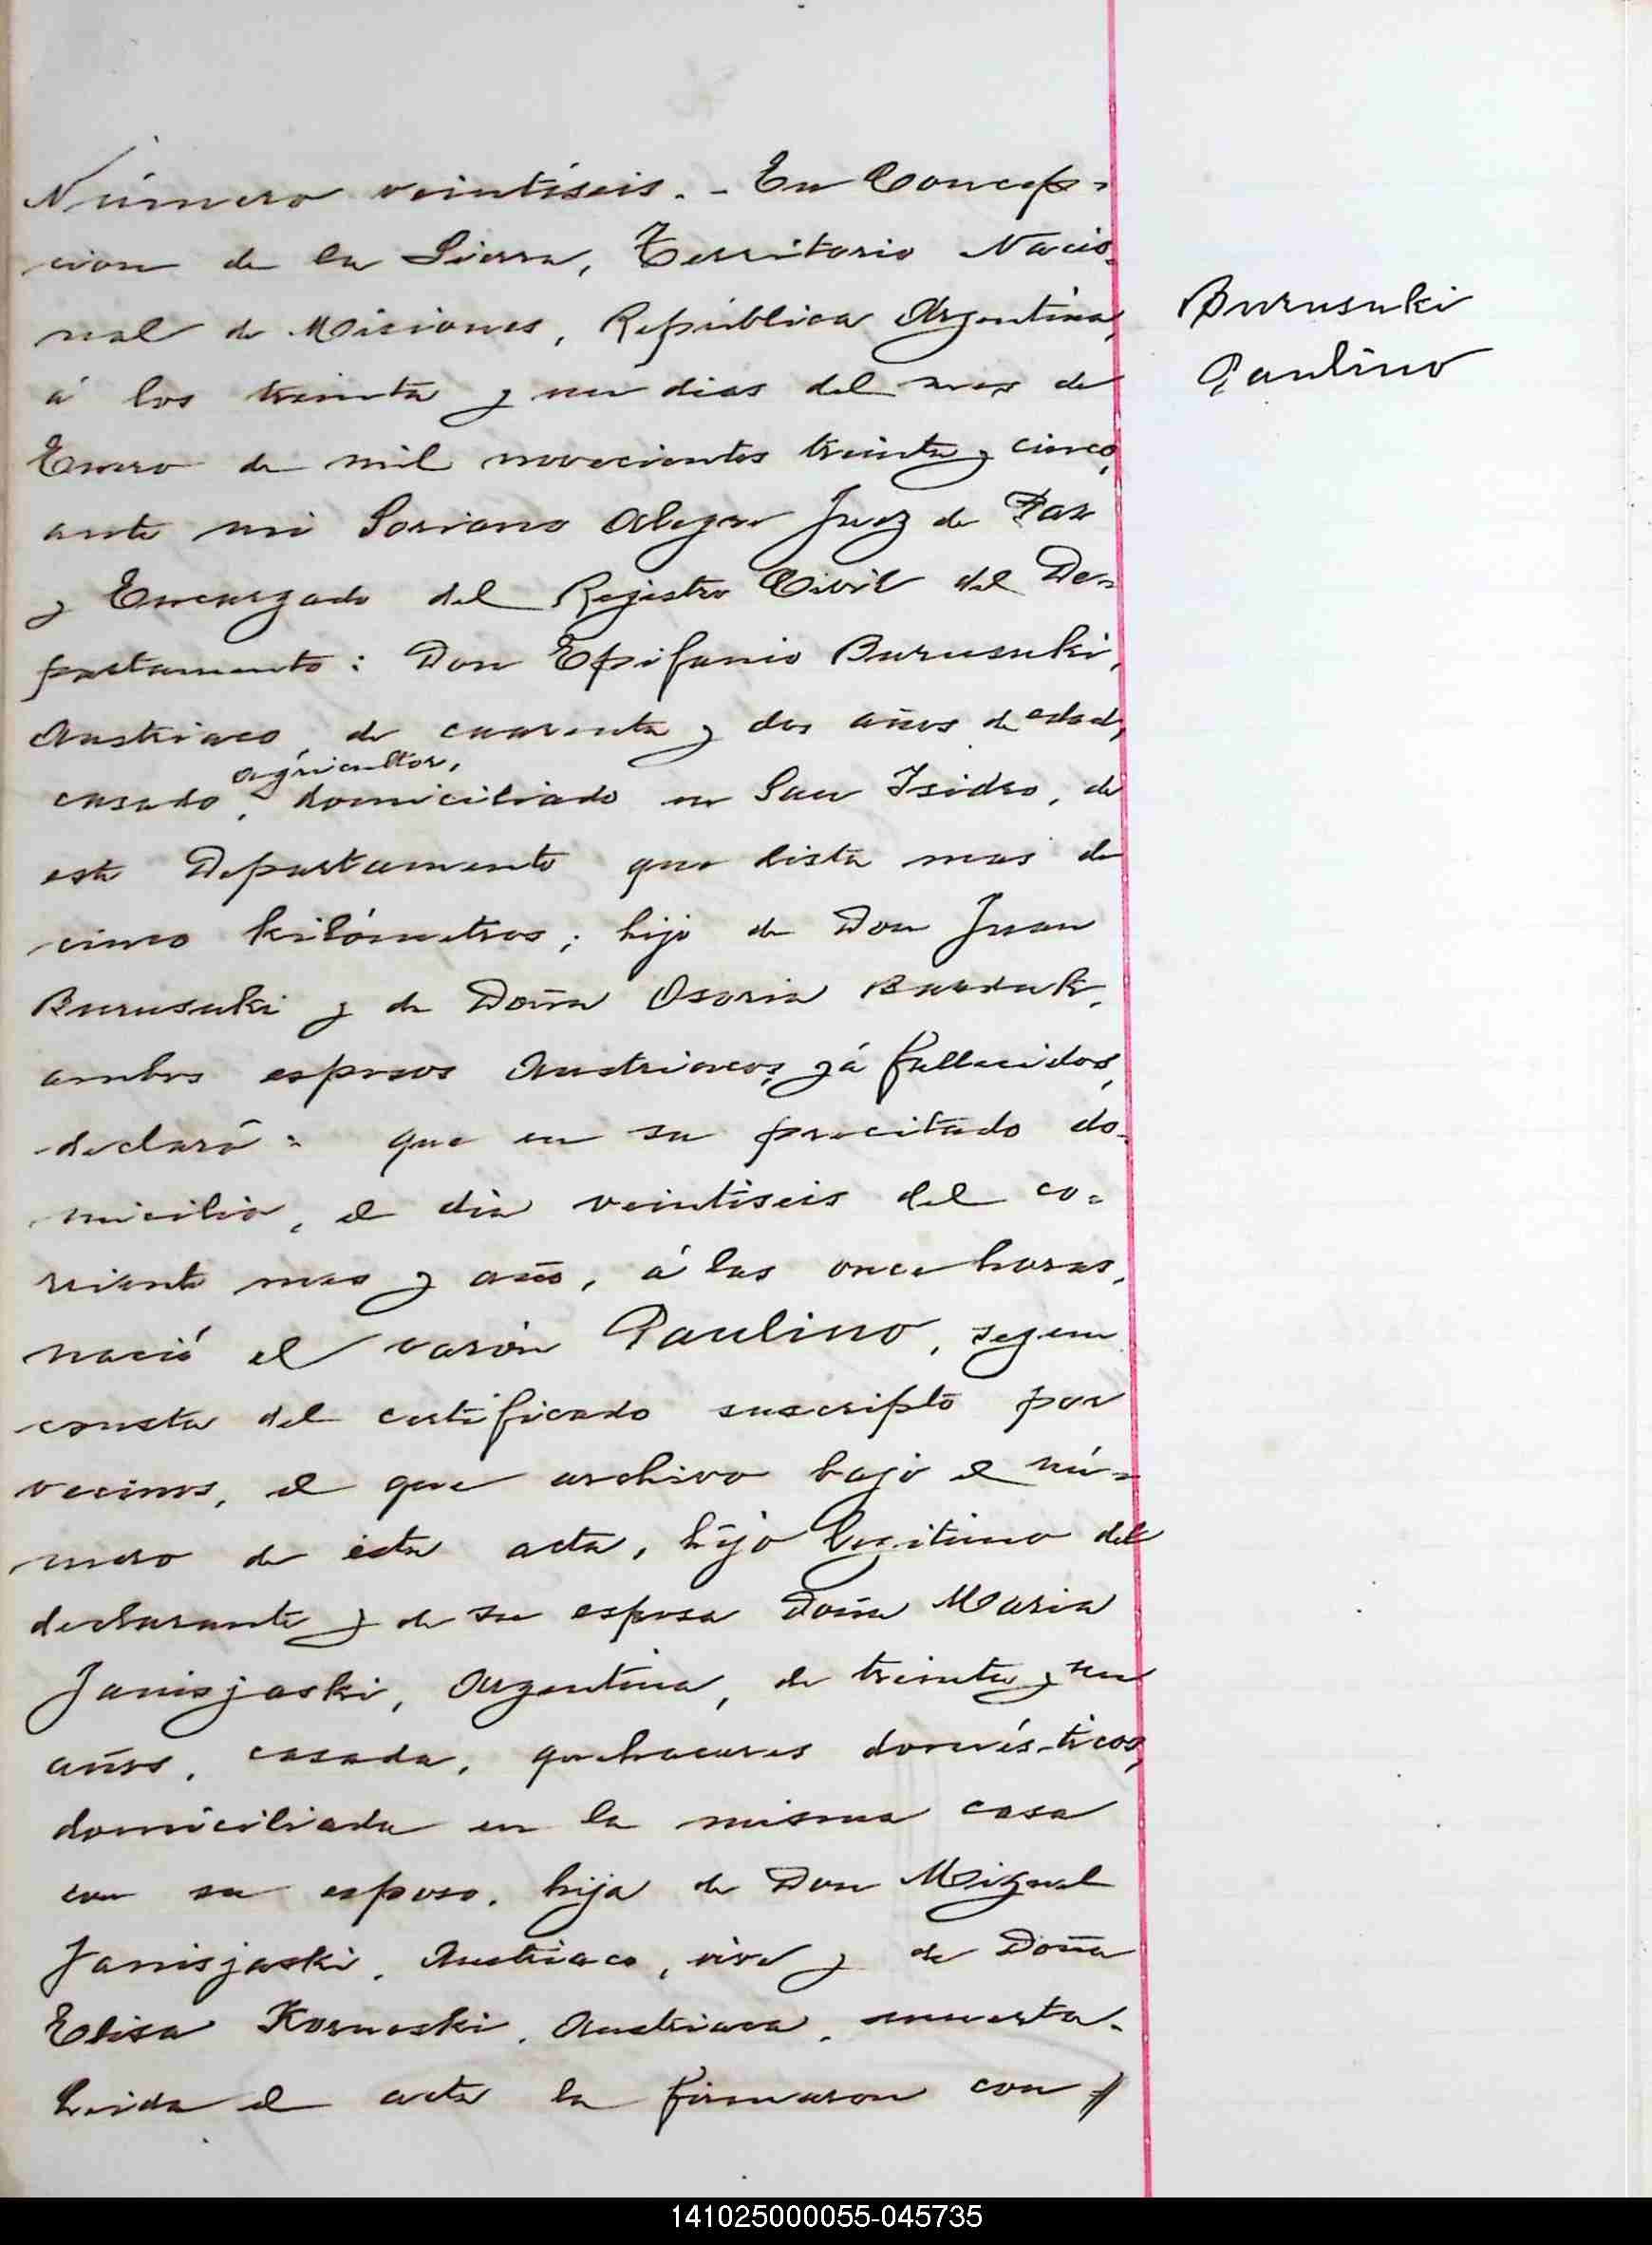 Número veintiseis. - En Concep-
cion de la Sierra, Territorio Nacio-
nal de Misiones, República Argentina,
á los treinta y un dias del mes de
Enero de mil novecientos treinta y cinco,
ante mi Soriano Alegre Juez de Paz
y Encargado del Registro Civil del De-
partamento: Don Epifanio Burusuki,
Austriaco, de cuarenta y dos años de edad,
agricultor,
casado, domiciliado en San Isidro, de
este Departamento que dista mas de
cinco kilómetros; hijo de Don Juan
Burusuki y de Doña Osoria Burduk,
ambos esposos Austriacos, yá fallecidos,
declaró: que en su precitado do-
micilio, el dia veintiseis del co-
rriente mes y año, á las once horas,
nació el varón Paulino, segun
consta del certificado suscripto por
vecinos, el que archivo bajo el nú-
mero de ésta acta, hijo legitimo del
declarante y de su esposa Doña Maria
Janisjaski, Argentina, de treinta y un
años, casada, quehaceres domésticos,
domiciliada en la misma casa
con su esposo, hija de Don Miguel
Janisjaski, Austriaco, vive y de Doña
Elisa Kornoski, Austriaca, muerta.
Leida el acta la firmaron con //
Burusuki
Paulino
141025000055-045735